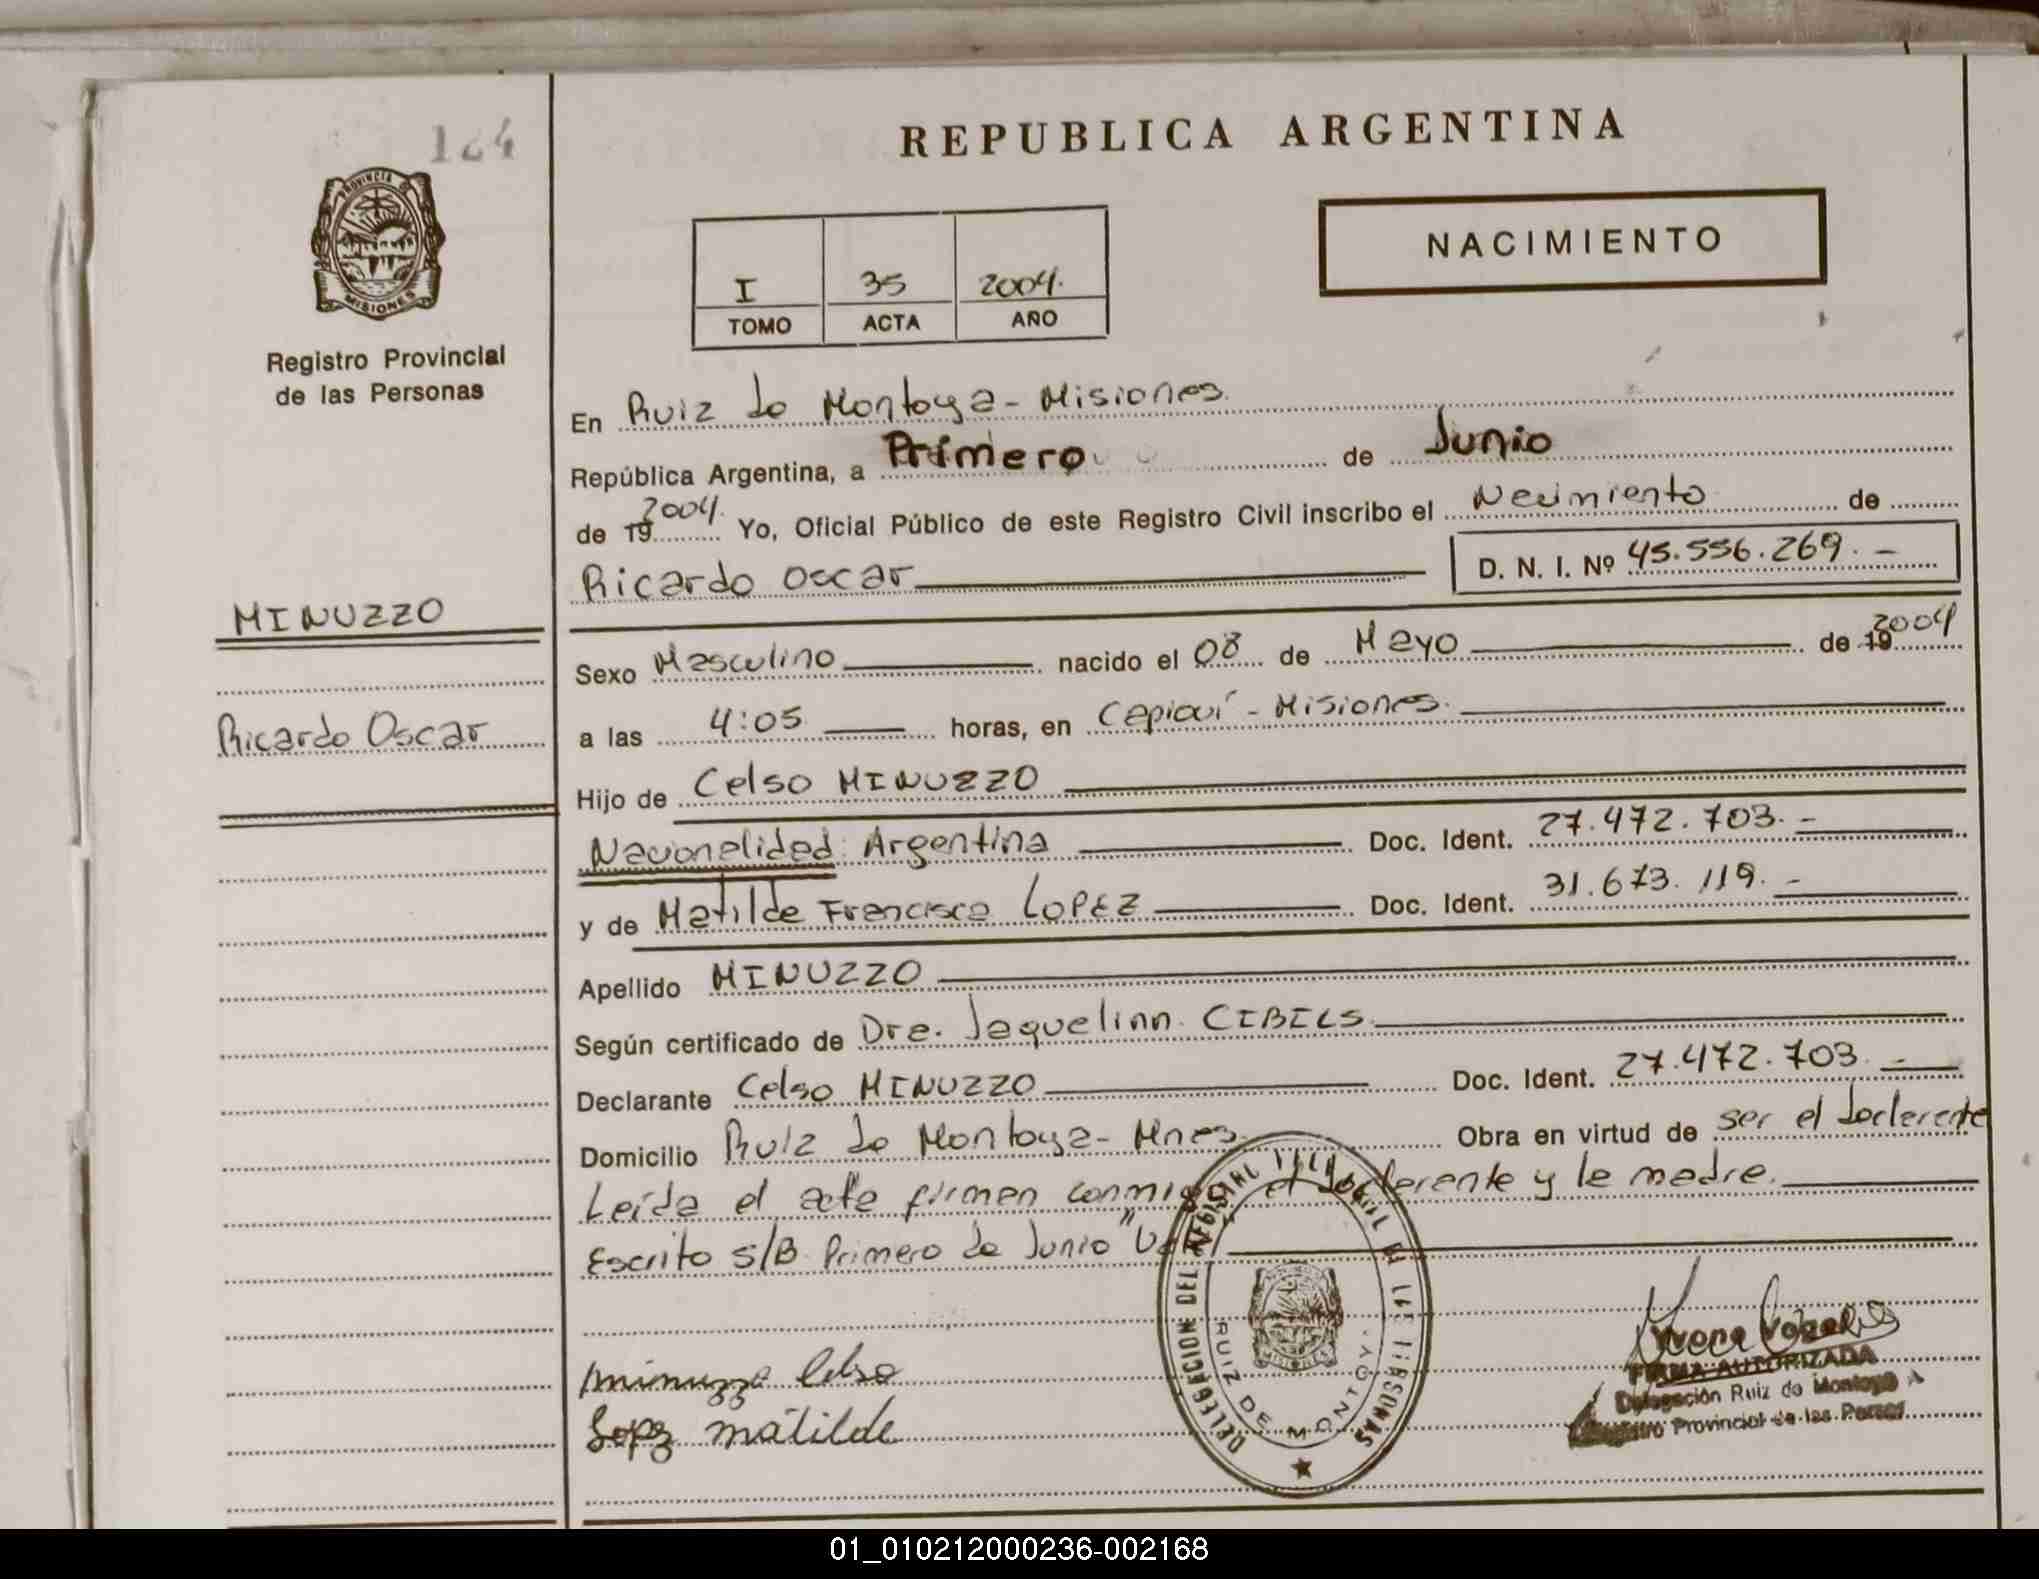 164
PROVINCIA DE
MISIONES
Registro Provincial
de las Personas
MINUZZO
Ricardo Oscar
REPUBLICA ARGENTINA
NACIMIENTO
I 35 2004.
TOMO ACTA AÑO
En Ruiz de Montoya - Misiones.
República Argentina, a Primero de Junio
de 19 2004. Yo, Oficial Público de este Registro Civil inscribo el Nacimiento de
Ricardo Oscar D. N. I. Nº 45.556.269. -
Sexo Masculino nacido el 08 de Mayo de 19 2004
a las 4:05 horas, en Capioví - Misiones.
Hijo de Celso MINUZZO
Nacionalidad: Argentina Doc. Ident. 27.472.703. -
y de Matilde Francisca LOPEZ Doc. Ident. 31.673.119. -
Apellido MINUZZO
Según certificado de Dra. Jaquelinn CIBILS.
Declarante Celso MINUZZO Doc. Ident. 27.472.703. -
Domicilio Ruiz de Montoya - Mnes. Obra en virtud de ser el declarante
Leída el acta firman conmigo el declarante y la madre.
Escrito S/B Primero de Junio "Vale"
Minuzzo Celso
Lopez Matilde
DELEGACION DEL REGISTRO CIVIL DE LAS PERSONAS
RUIZ DE MONTOYA
MISIONES
FIRMA AUTORIZADA
Delegación Ruiz de Montoya
Registro Provincial de las Person
01_010212000236-002168